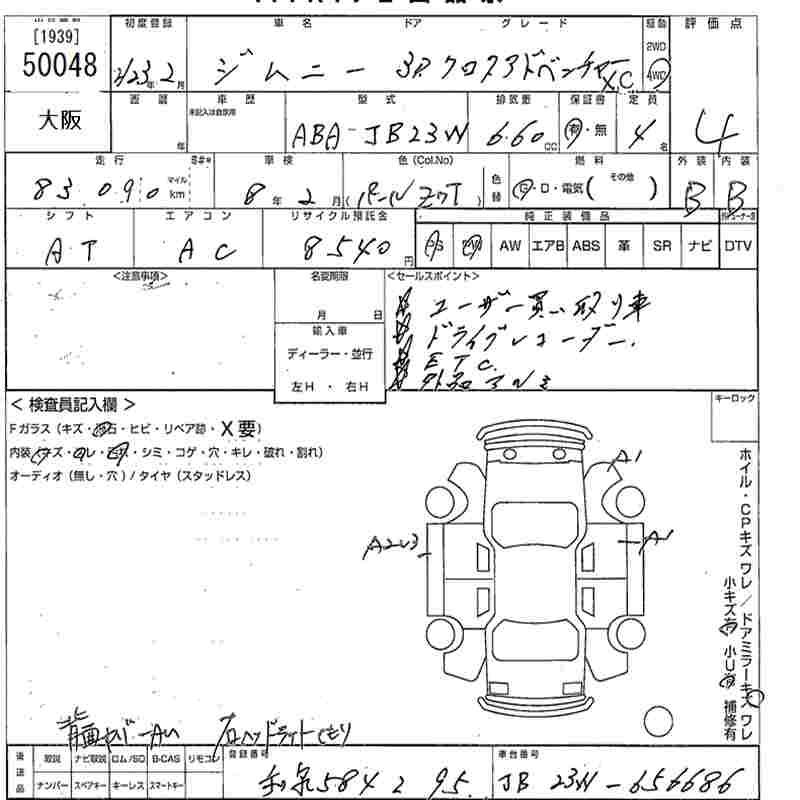 [1939]
50048
大阪
初度登録 車名 ドア グレード 駆動 評価点
H23年2月 ジムニー 3D クロスアドベンチャー XC 2WD 4WD
4
西暦 車歴 型式 排気量 保証書 定員
未記入は自家用
年 ABA-JB23W 660cc 有・無 4名
走行 車検 色(Col.No) 色替 燃料 外装 内装
83,090 マイル km 8年2月 (パール ZJT) G・D・電気( その他 ) B B
シフト エアコン リサイクル預託金 純正装備品
AT AC 8540円 PS PW AW エアB ABS 革 SR ナビ DTV
<注意事項> 名変期限 <セールスポイント>
月 日
輸入車
ディーラー・並行
左H・右H
ユーザー買い取り車
ドライブレコーダー.
ETC.
外品アルミ
<検査員記入欄> キーロック
Fガラス(キズ・飛石・ヒビ・リペア跡・X要)
内装(キズ・・シミ・コゲ・穴・キレ・破れ・割れ)
オーディオ(無し・穴)/タイヤ(スタッドレス)
A1
A1
A2U3
ホイル・CPキズワレ/ドアミラーキズワレ
小キズ有 小U有 補修有
背面カバーAU 右ヘッドライトくもり
後送品 取説 ナビ取説 ロム/SD B-CAS リモコン 登録番号 車台番号
ナンバー スペアキー キーレス スマートキー 和泉584 95 JB23W-656686